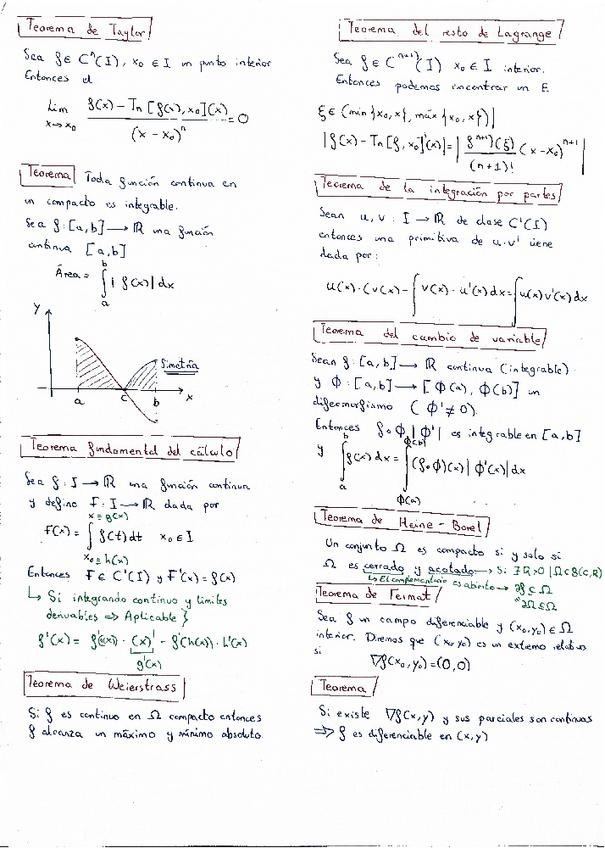 Teorema de Taylor
Sea f ∈ Cⁿ(I), x₀ ∈ I un punto interior
Entonces el
Lim x→x₀ (f(x) - Tn[f(x), x₀](x)) / (x - x₀)ⁿ = 0
Teorema Toda función continua en
un compacto es integrable.
Sea f: [a,b] → ℝ una función
continua [a,b]
Área = ∫ₐᵇ |f(x)| dx
y
Simetría
a c b x
Teorema fundamental del cálculo
Sea f: I → ℝ una función continua
y defino F: I → ℝ dada por
x = g(x)
F(x) = ∫ f(t) dt x₀ ∈ I
x₀ = h(x)
Entonces F ∈ C¹(I) y F'(x) = f(x)
↳ Si integrando continuo y límites
derivables => Aplicable }
(x)'
g'(x)
Teorema de Weierstrass
Si f es continuo en Ω compacto entonces
f alcanza un máximo y mínimo absoluto
Teorema del resto de Lagrange
Sea f ∈ Cⁿ⁺¹(I) x₀ ∈ I interior.
Entonces podemos encontrar un ξ.
ξ ∈ (min{x₀,x}, máx{x₀,x})|
|f(x) - Tn[f,x₀](x)| = | fⁿ⁺¹)(ξ) / (n+1)! (x - x₀)ⁿ⁺¹ |
Teorema de la integración por partes
Sean u, v: I → ℝ de clase C¹(I)
entonces una primitiva de u·v' viene
dada por:
u(x)·(v(x) - ∫ v(x)·u'(x) dx = ∫ u(x) v'(x) dx
Teorema del cambio de variable
Sean f: [a,b] → ℝ continua (integrable)
y Φ: [a,b] → [Φ(a), Φ(b)] un
difeomorfismo (Φ' ≠ 0).
Entonces f∘Φ|Φ'| es integrable en [a,b]
y ∫ₐᵇ f(x) dx = ∫ (f∘Φ)(x) |Φ'(x)| dx
Φ(b)
Φ(a)
Teorema de Heine - Borel
Un conjunto Ω es compacto si y solo si
Ω es cerrado y acotado → Si ∃ R>0 | Ω ⊂ B(c,R)
↳ El complementario es abierto →
∂Ω ⊆ Ω
Teorema de Fermat
Sea f un campo diferenciable y (x₀,y₀) ∈ Ω
interior. Diremos que (x₀,y₀) es un extremo relativo
si
∇f(x₀,y₀) = (0,0)
Teorema
Si existe ∇f(x,y) y sus parciales son continuas
=> f es diferenciable en (x,y)